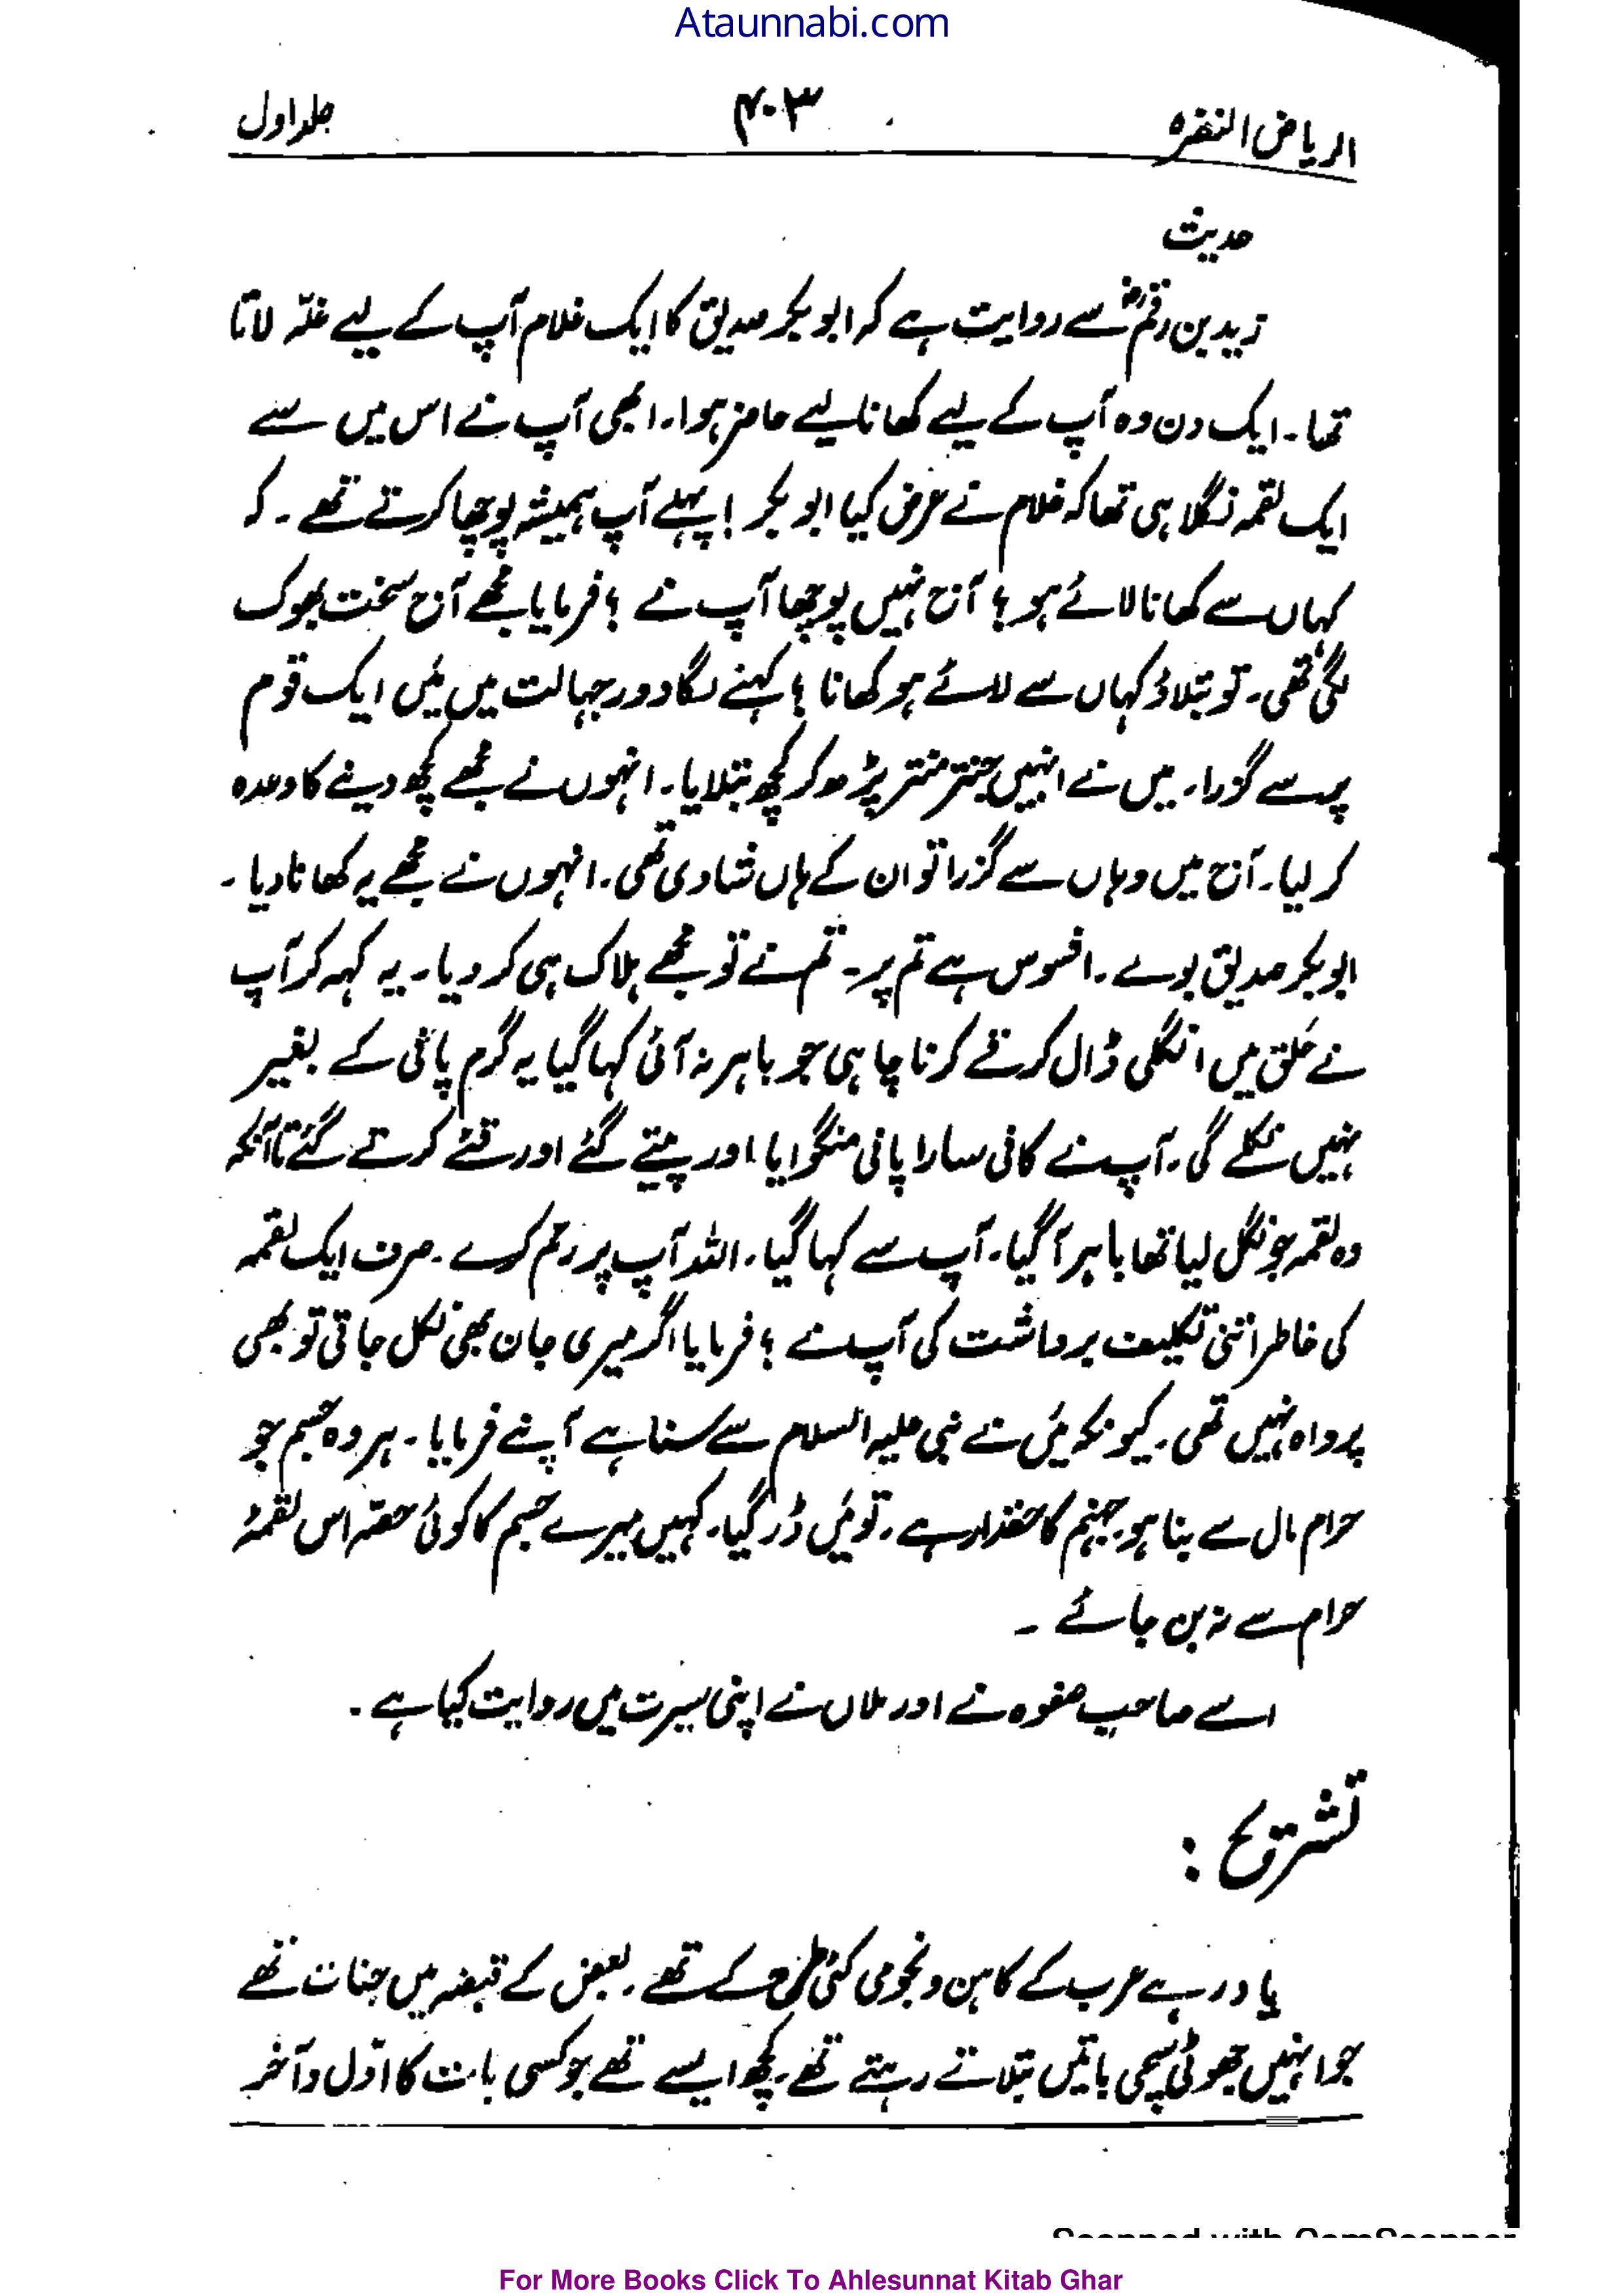 Ataunnabi.com
الریاض النضرہ ۴۰۳ جلد اول
حدیث
زید بن رقمؓ سے روایت ہے کہ ابو بکر صدیق کا ایک غلام آپ کے لیے غلّہ لاتا
تھا۔ ایک دن وہ آپ کے لیے کھانا لیے حاضر ہوا۔ ابھی آپ نے اس میں سے
ایک لقمہ نگلا ہی تھا کہ غلام نے عرض کیا ابو بکر! پہلے آپ ہمیشہ پوچھا کرتے تھے۔ کہ
کہاں سے کھانا لائے ہو؟ آج نہیں پوچھا آپ نے ؟ فرمایا مجھے آج سخت بھوک
لگی تھی۔ تو بتلاؤ کہاں سے لائے ہو کھانا ؟ کہنے لگا دور جہالت میں مَیں ایک قوم
پر سے گزرا۔ میں نے انہیں جنتر منتر پڑھ کر کچھ بتلایا۔ انہوں نے مجھے کچھ دینے کا وعدہ
کر لیا۔ آج میں وہاں سے گزرا تو ان کے ہاں شادی تھی۔ انہوں نے مجھے یہ کھانا دیا۔
ابو بکر صدیق بولے۔ افسوس ہے تم پر۔ تم نے تو مجھے ہلاک ہی کر دیا۔ یہ کہہ کر آپ
نے حَلق میں انگلی ڈال کر قے کرنا چاہی جو باہر نہ آئی کہا گیا یہ گرم پانی کے بغیر
نہیں نکلے گی۔ آپ نے کافی سارا پانی منگوایا اور پیتے گئے اور قئے کرتے گئے تاآنکہ
وہ لقمہ جو نگل لیا تھا باہر آ گیا۔ آپ سے کہا گیا۔ اللہ آپ پر رحم کرے۔ صرف ایک لقمہ
کی خاطر اتنی تکلیف برداشت کی آپ نے ؟ فرمایا اگر میری جان بھی نکل جاتی تو بھی
پرواہ نہیں تھی۔ کیونکہ مَیں نے نبی علیہ السلام سے سنا ہے آپ نے فرمایا۔ ہر وہ جسم جو
حرام مال سے بنا ہو جہنم کا حقدار ہے۔ تو مَیں ڈر گیا۔ کہیں میرے جسم کا کوئی حصّہ اس لقمۂ
حرام سے نہ بن جائے ۔
اسے صاحب صفوہ نے اور ملاں نے اپنی سیرت میں روایت کیا ہے۔
تشریح :
یاد رہے عرب کے کاہن و نجومی کئی طرح کے تھے۔ بعض کے قبضہ میں جنات تھے
جو انہیں جھوٹی سچی باتیں بتلاتے رہتے تھے۔ کچھ ایسے تھے جو کسی بات کا اوّل و آخر
Scanned with CamScanner
For More Books Click To Ahlesunnat Kitab Ghar